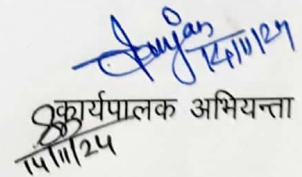 14/11/24
कार्यपालक अभियन्ता
14/11/24